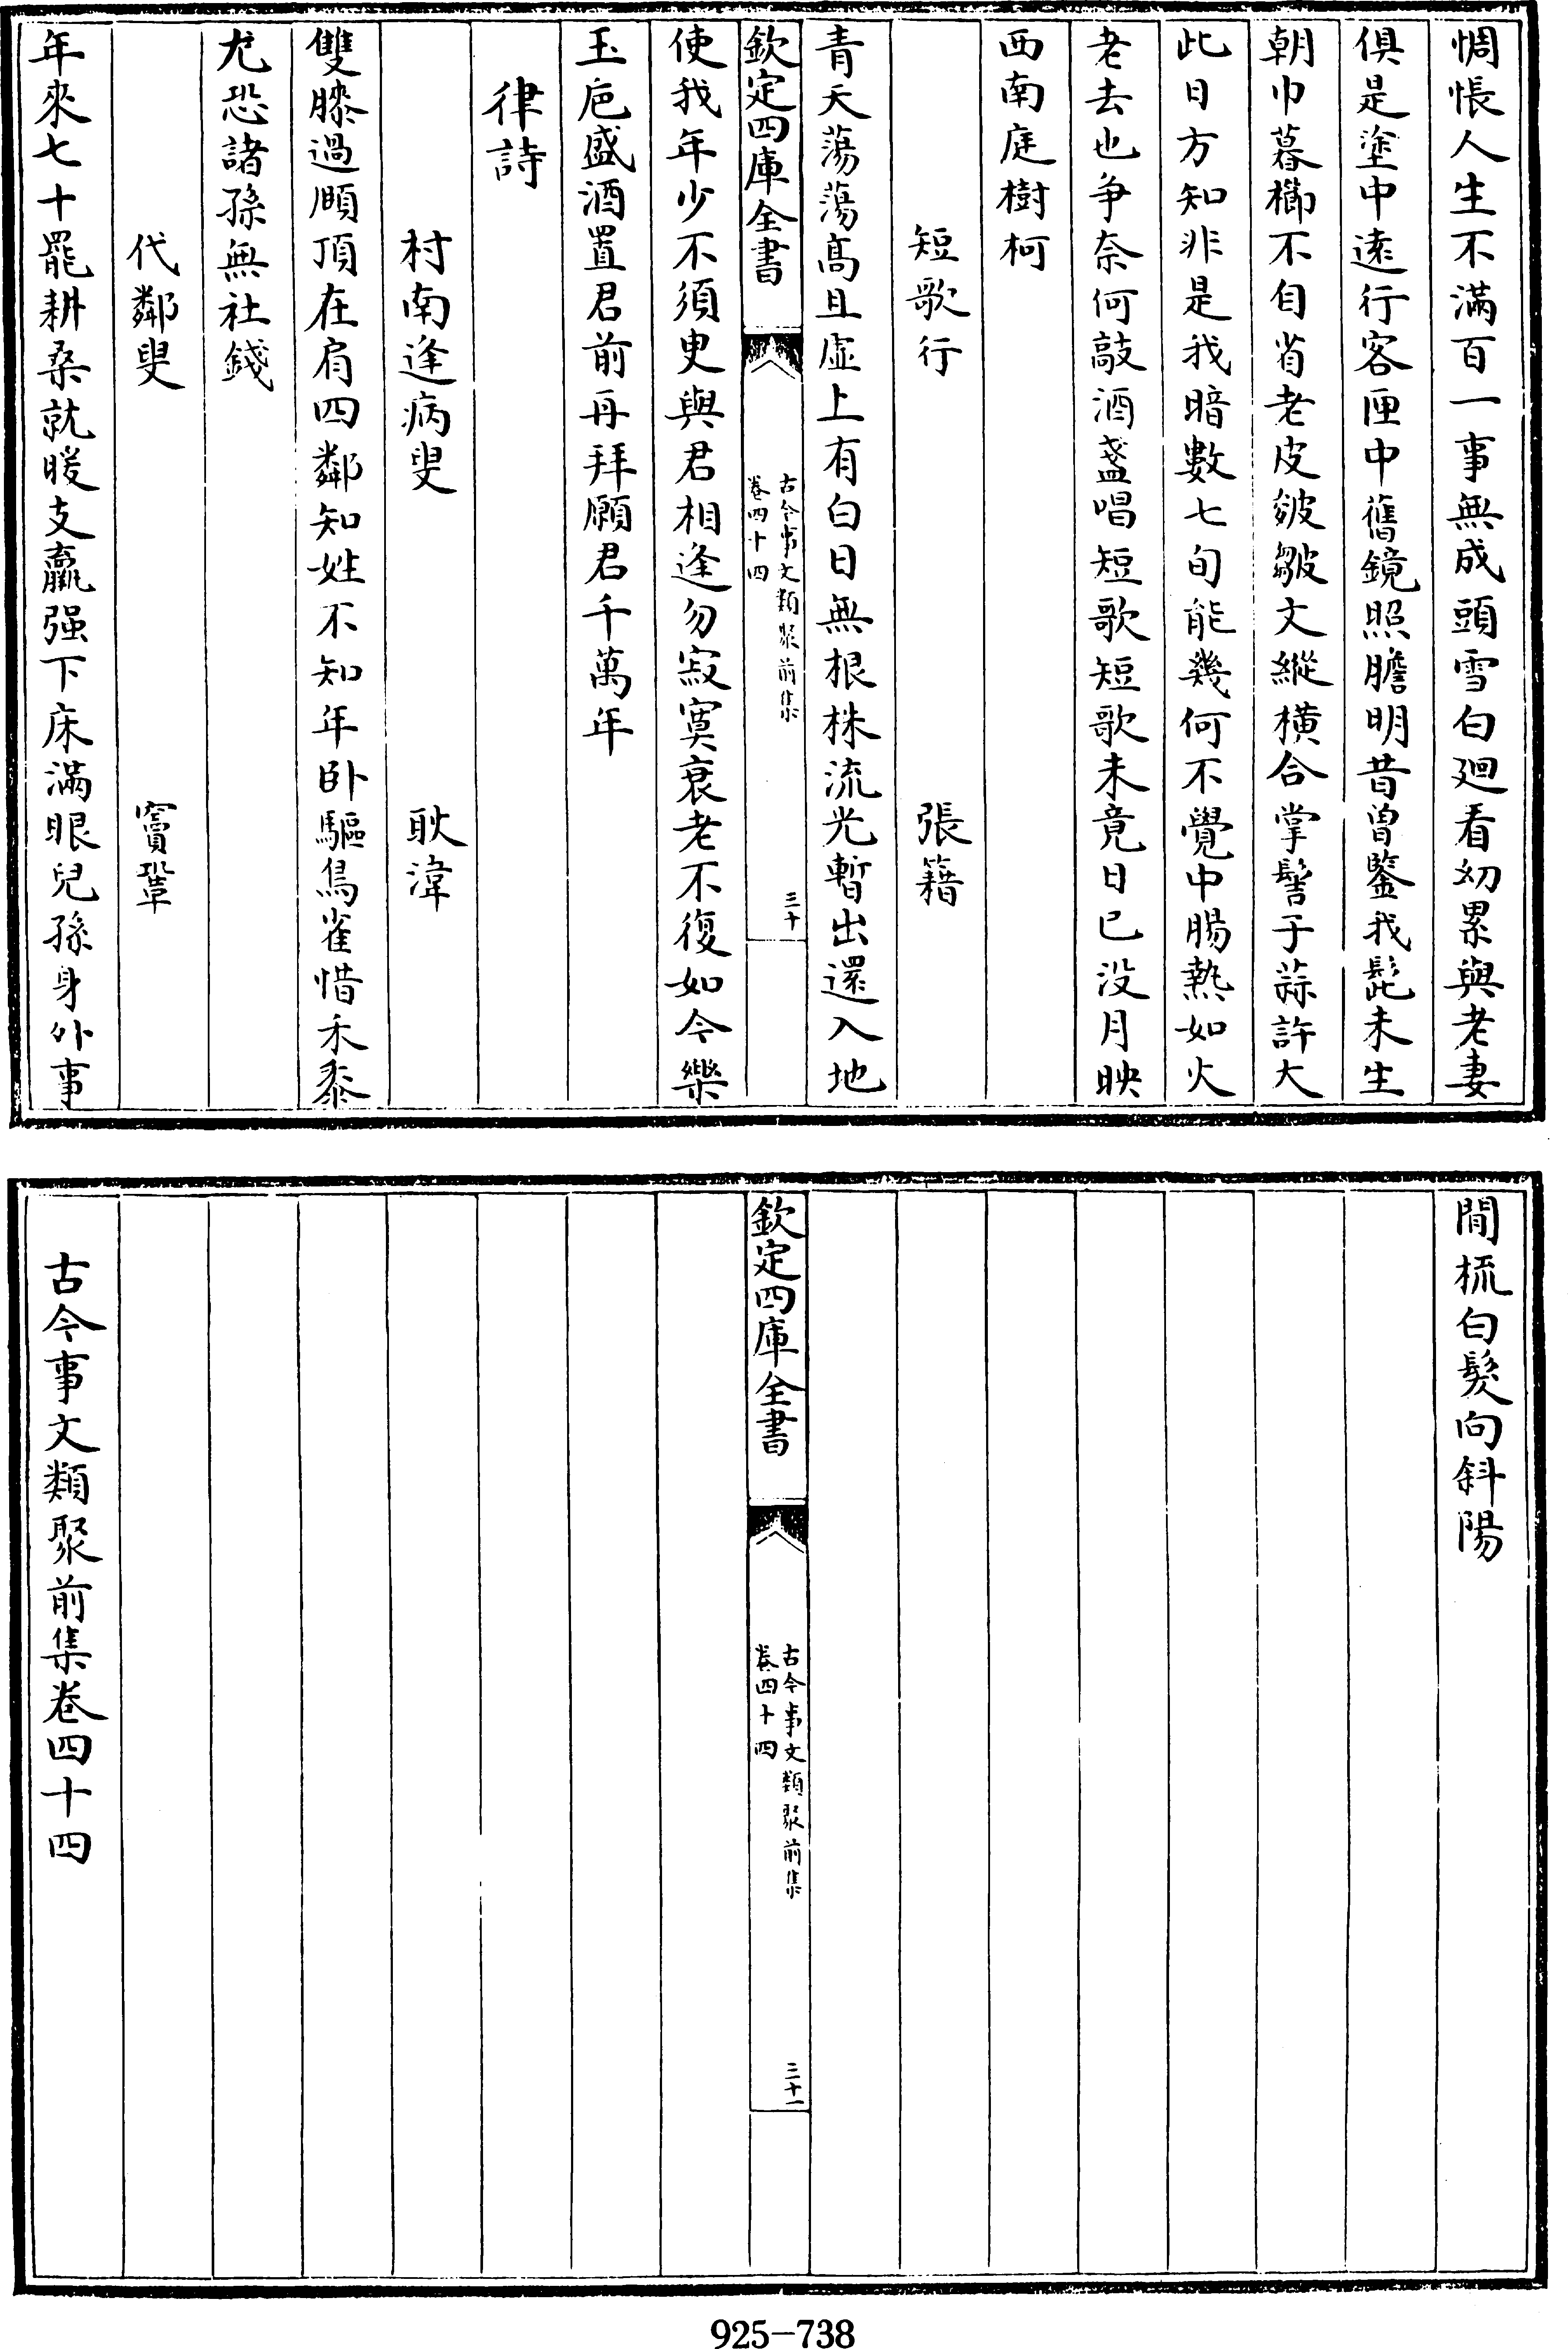 惆悵人生不滿百一事無成頭雪白廻看幼累與老妻
俱是塗中逺行客匣中舊鏡照膽明昔曽鑒我髭未生
朝巾暮櫛不自省老皮皴皺文縱横合掌髻子蒜許大
此日方知非是我暗數七旬能幾何不覺中腸熱如火
老去也争奈何敲酒盞唱短歌短歌未竟日已没月映
西南庭樹柯
短歌行 張籍
青天蕩蕩髙且虚上有白日無根株流光暫出還入地
欽定四庫全書
古今事文類聚前集
卷四十四
三十
使我年少不須臾與君相逢勿寂寞衰老不復如今樂
玉巵盛酒置君前再拜願君千萬年
律詩
村南逢病叟 耿湋
雙膝過頤頂在肩四鄰知姓不知年卧驅鳥雀惜禾黍
尤恐諸孫無社錢
代鄰叟 竇鞏
年來七十罷耕桑就暖支羸强下床滿眼兒孫身外事
閒梳白髮向斜陽
欽定四庫全書
古今事文類聚前集
卷四十四
三十一
古今事文類聚前集卷四十四
925-738